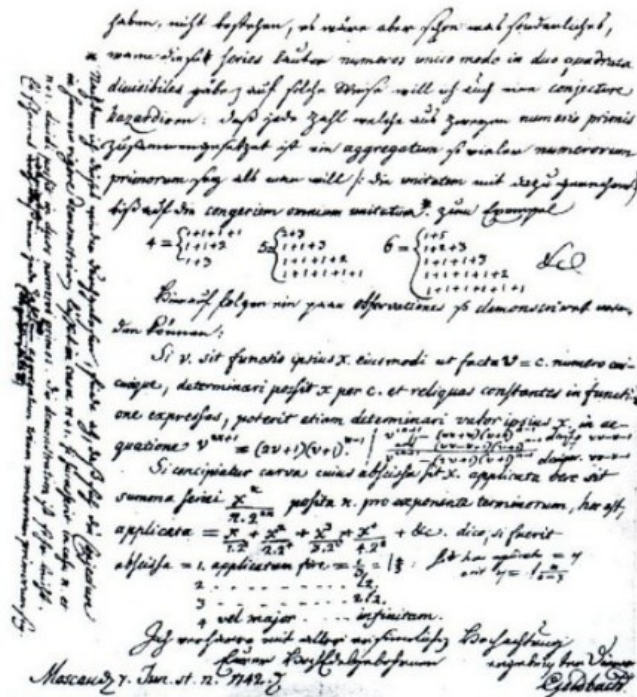 haben, nicht bestehen, es wäre aber schon was sonderliches,
wann series lauter numeros unico modo in duo quadrata
divisibiles gäbe auf solche Weise will ich auch eine conjecture
hazardiren: daß jede Zahl welche aus zweyen numeris primis
zusammengesetzt ist ein aggregatum so vieler numerorum
primorum sey als man will /: die unitatem mit dazu gerechnet :/
biß auf die congeriem omnium unitatum*. zum Exempel
4 = { 1+1+1+1 5 = { 2+3 6 = { 1+5
1+1+2 1+1+3 1+2+3
1+3 1+1+1+2 1+1+1+3
1+1+1+1+1 1+1+1+1+2
1+1+1+1+1+1 &c
Hierauf folgen ein paar observationes so demonstriret wer-
den können:
Si v. sit functio ipsius x. eiusmodi ut facta v = c. numero cui-
cunque, determinari possit x per c. et reliquas constantes in functi-
one expressas, poterit etiam determinari valor ipsius x. in ae-
quatione v^{2n+1} = (2v+1)(v+1)^{n-1}
Si concipiatur curva cuius abscissa sit x. applicata vero sit
summa seriei x^n/n.2^{2n} posita n. pro exponente terminorum, hoc est,
applicata = x/1.2^2 + x^2/2.2^4 + x^3/3.2^6 + x^4/4.2^8 + &c. dico, si fuerit
abscissa = 1. applicatam fore = l 4/3
2 . . . . . . . . l2.
3 . . . . . . . . 2l2.
4 vel major . . . infinitam.
Ich verharre mit aller Hochachtung
Eurer Hochedelgebohrnen ergebenster Diener
Moscau d. 7. Jun. st. n. 1742. Goldbach
* Nachdem ich dieses wieder durchgelesen, finde ich, daß sich die Conjecture
in summo rigore demonstriren in casu n+1. si successerit in casu n. et
n+1. dividi possit in duos numeros primos. die demonstration ist sehr leicht.
Es scheinet jede Zahl ein aggregatum trium numerorum primorum sey.